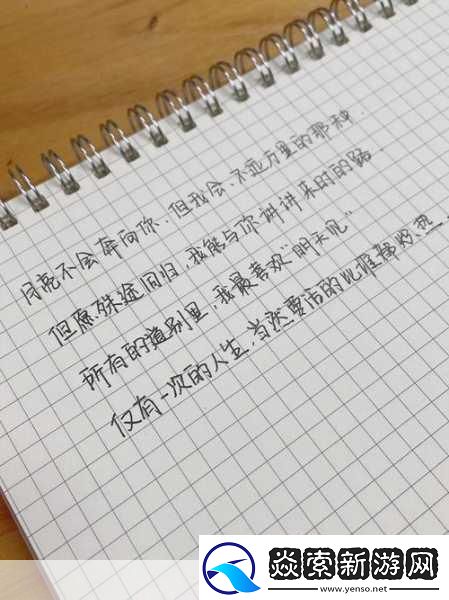 月亮不会奔向你,但我会,不远万里的那种.
但愿殊途同归,我能与你讲讲来时的路.
所有的道别里,我最喜欢“明天见”
仅有一次的人生,当然要活的比谁都炽热
焱索新游网
www.yenso.net